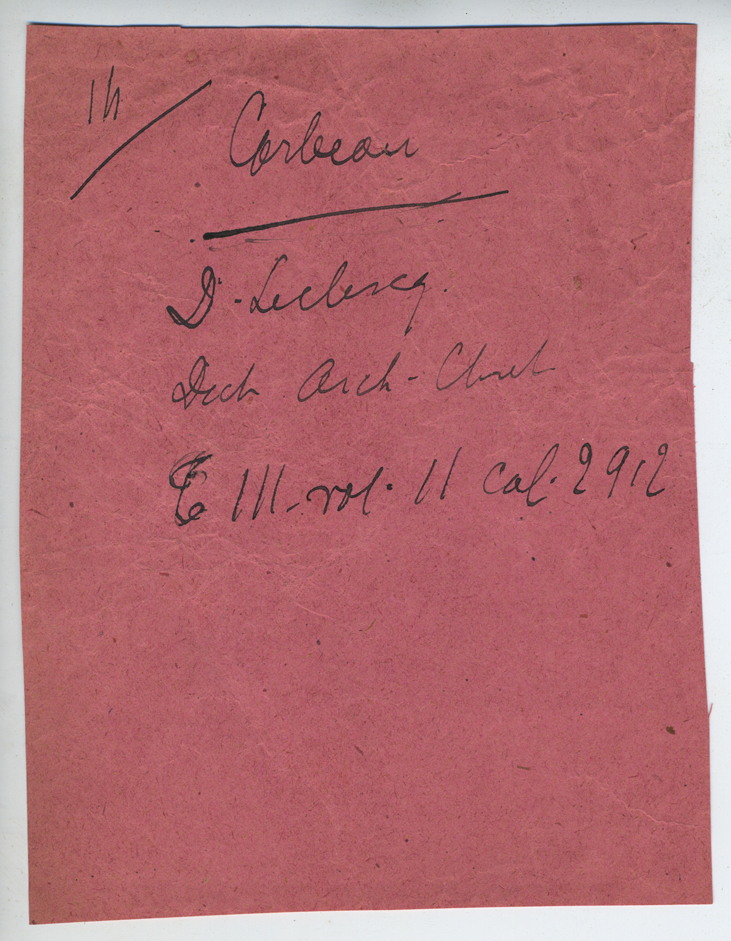 Corbeau
D. Leclercq.
Dict Arch-Chret
T III - vol. II col. 2912